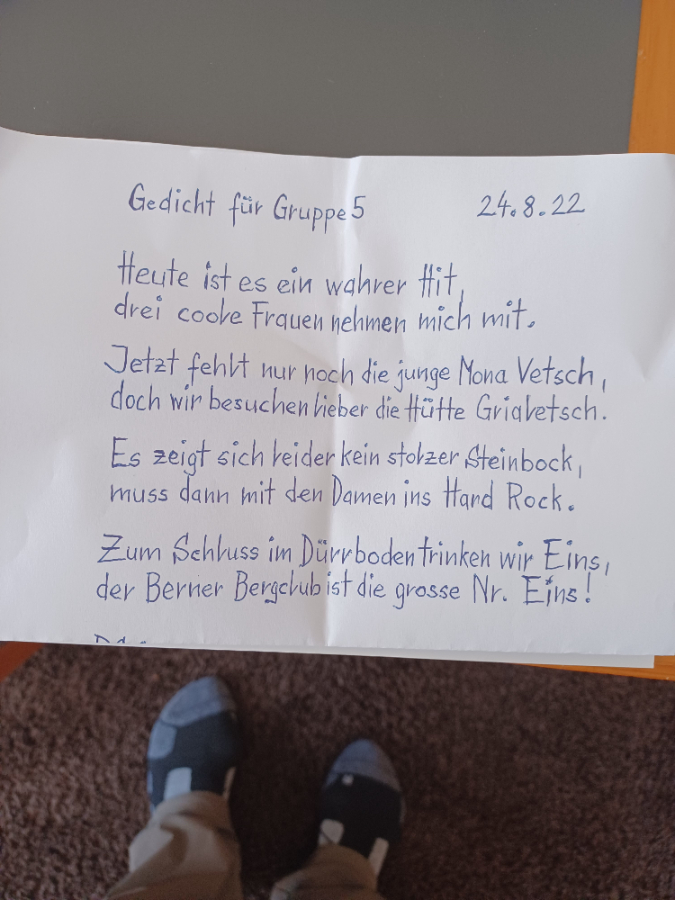 Gedicht für Gruppe 5 24.8.22
Heute ist es ein wahrer Hit,
drei coole Frauen nehmen mich mit.
Jetzt fehlt nur noch die junge Mona Vetsch,
doch wir besuchen lieber die Hütte Grialetsch.
Es zeigt sich leider kein stolzer Steinbock,
muss dann mit den Damen ins Hard Rock.
Zum Schluss im Dürrboden trinken wir Eins,
der Berner Bergclub ist die grosse Nr. Eins!